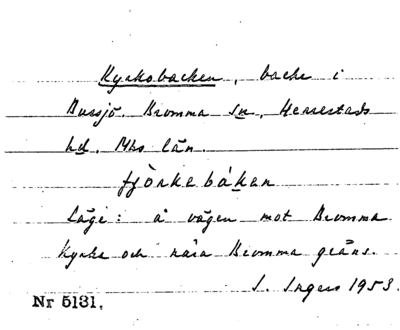 Kyrkobacken, backe i
Bussjö. Bromma sn, Herrestads
hd. Mhs län.
fjörkebáken
Läge: å vägen mot Bromma
Kyrka och nära Bromma gräns.
I. Ingers 1953.
Nr 5131.